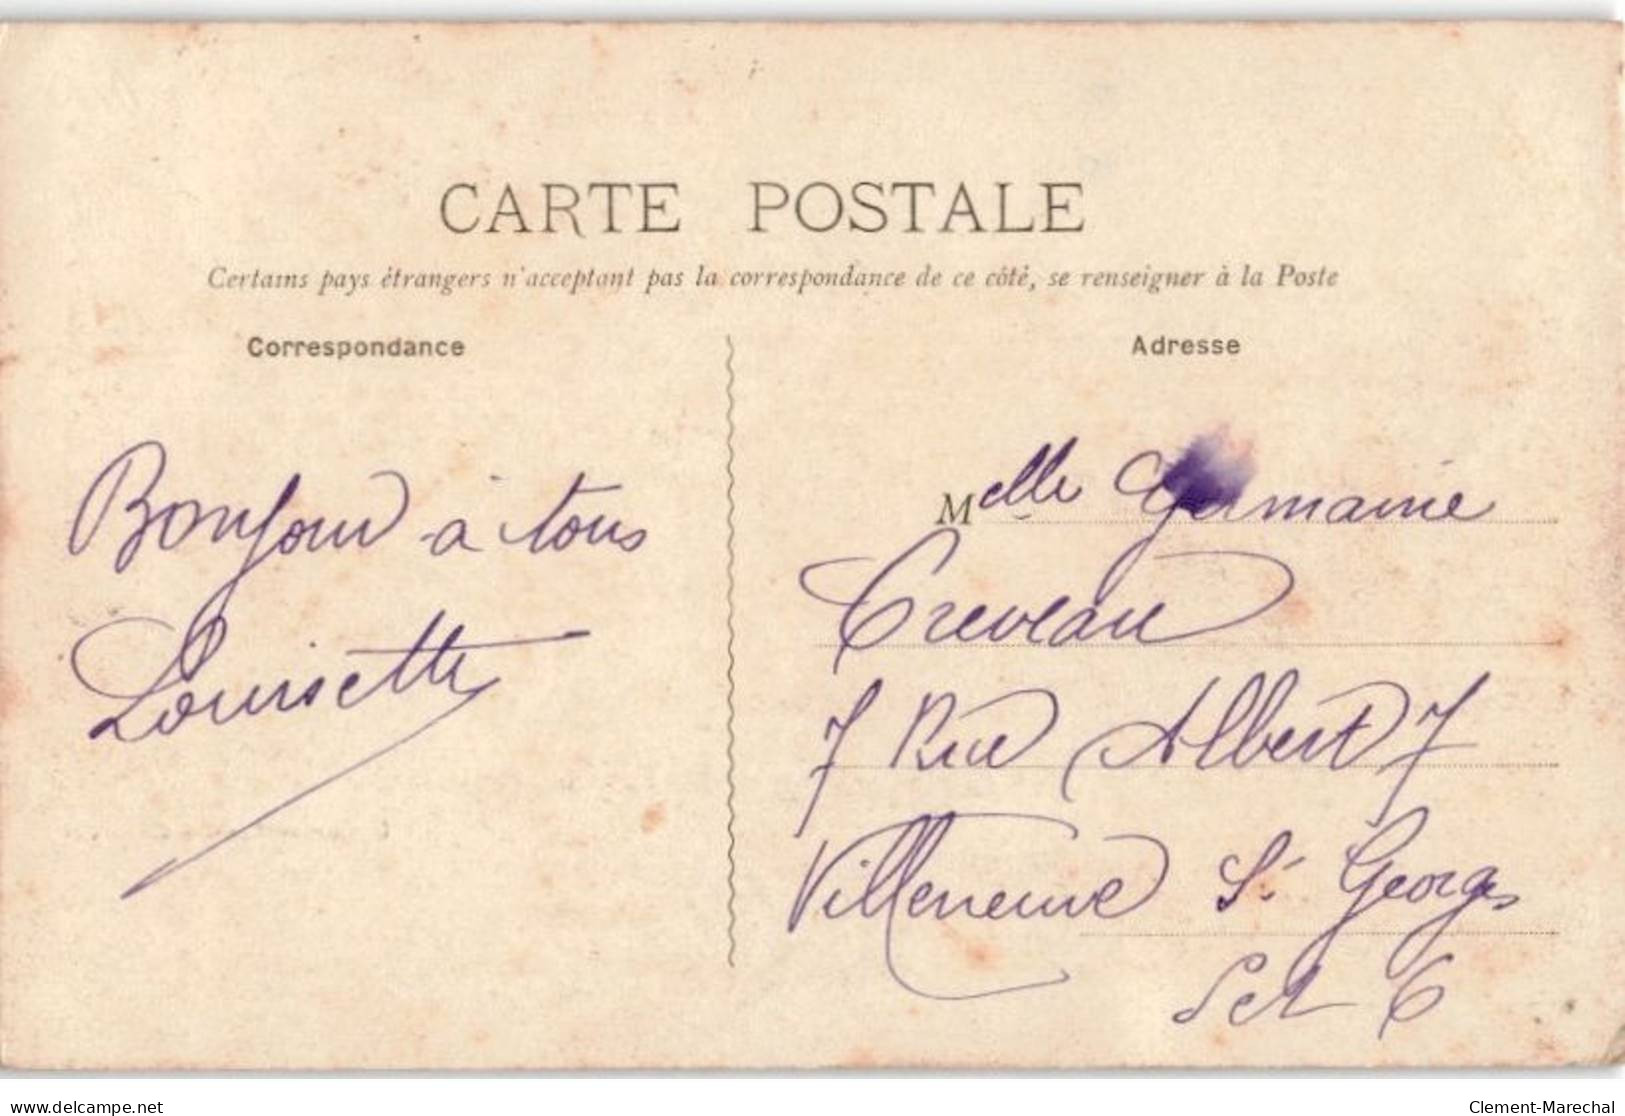 CARTE POSTALE
Certains pays étrangers n'acceptant pas la correspondance de ce côté, se renseigner à la Poste
Correspondance
Adresse
Bonjour à tous
Louisette
Melle Germaine
Creveau
7 Rue Albert 7
Villeneuve St Georges
S et O
delcampe.net
Clement-Marechal